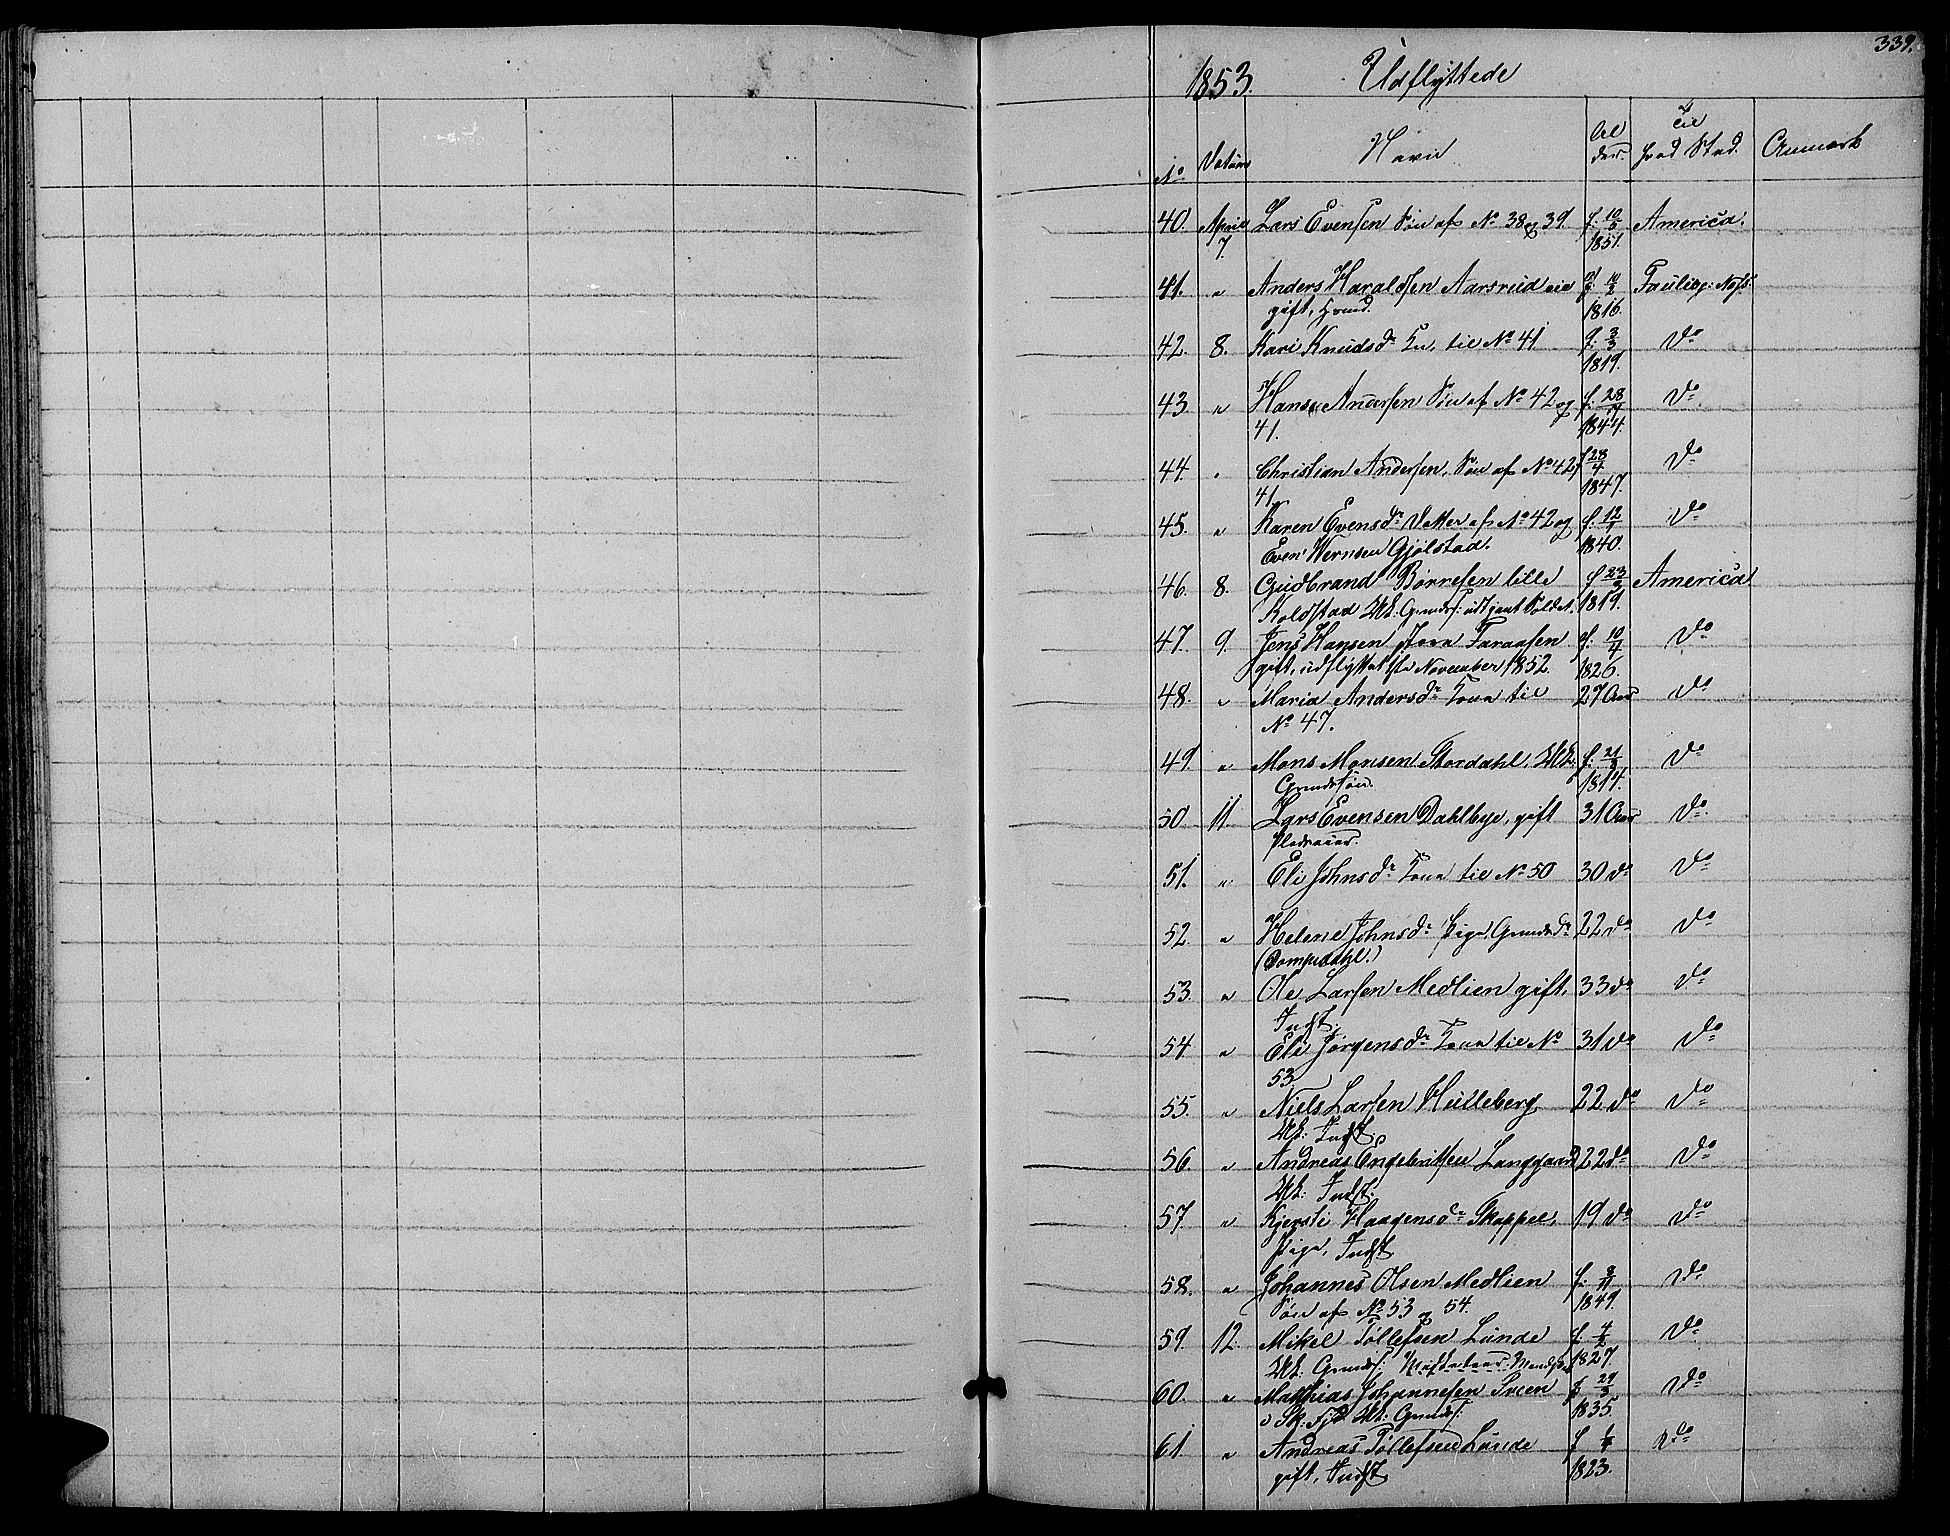 339.
1853. Udflyttede
No Datum Navn Alder. Til hvad Sted. Anmærk
40. April 7. Lars Evensen Søn af No 38 og 39. f. 10/6 1851. America.
41. " Anders Haraldsen Aarsrud
gift, f. 10/2 1816.
42. 8. Kari Knudsdr til No 41 f. 3/3 1819. Do
43. " Hans Andersen Søn af No 42 og f. 28/7 1844. Do
41.
44. " Christian Andersen, Søn af No 42 f 28/4 1847. Do
41
45. " Karen Evensdr Datter af No 42 og f. 12/1 1840. Do
Even Wernsen Gjølstad.
46. 8. Gudbrand Børresen lille f 23/3 1819. America
Koldstad
47. 9. Jens Hansen store Faraasen f. 10/4 1826. Do
gift, udflyttet November 1852.
48. " Maria Andersdr Kone til 27 Aar Do
No 47.
49 " Mons Monsen Stordahl, f. 21/3 Do
50 11 Lars Evensen Dahlbye, gift 31 Aar Do
51. " Eli Johnsdr Kone til No 50 30 do Do
52. " Helene Johnsdr Pige, 22 do Do
53. " Ole Larsen Medlien gift, 33 do Do
Indst.
54 " Eli Jørgensdr Kone til No 31 do Do
53
55. " Niels Larsen Hilleberg 22 do Do
Uk: Indst.
56. " Andreas Engebritsen Langgaard 22 do Do
Uk: Indst.
57 " Kjersti Haagensdr Skappel, 19 do Do
Pige, Indst
58. " Johannes Olsen Medlien f. 8/11 1849. Do
Søn af No 53 og 54.
59. 12. Mikel Tollefsen Lunde f. 4/2 1827. Do
60. " Mathias Johannesen f. 29/3 1835. Do
61 " Andreas Tollefsen Lunde f 1823. Do
gift, Indst